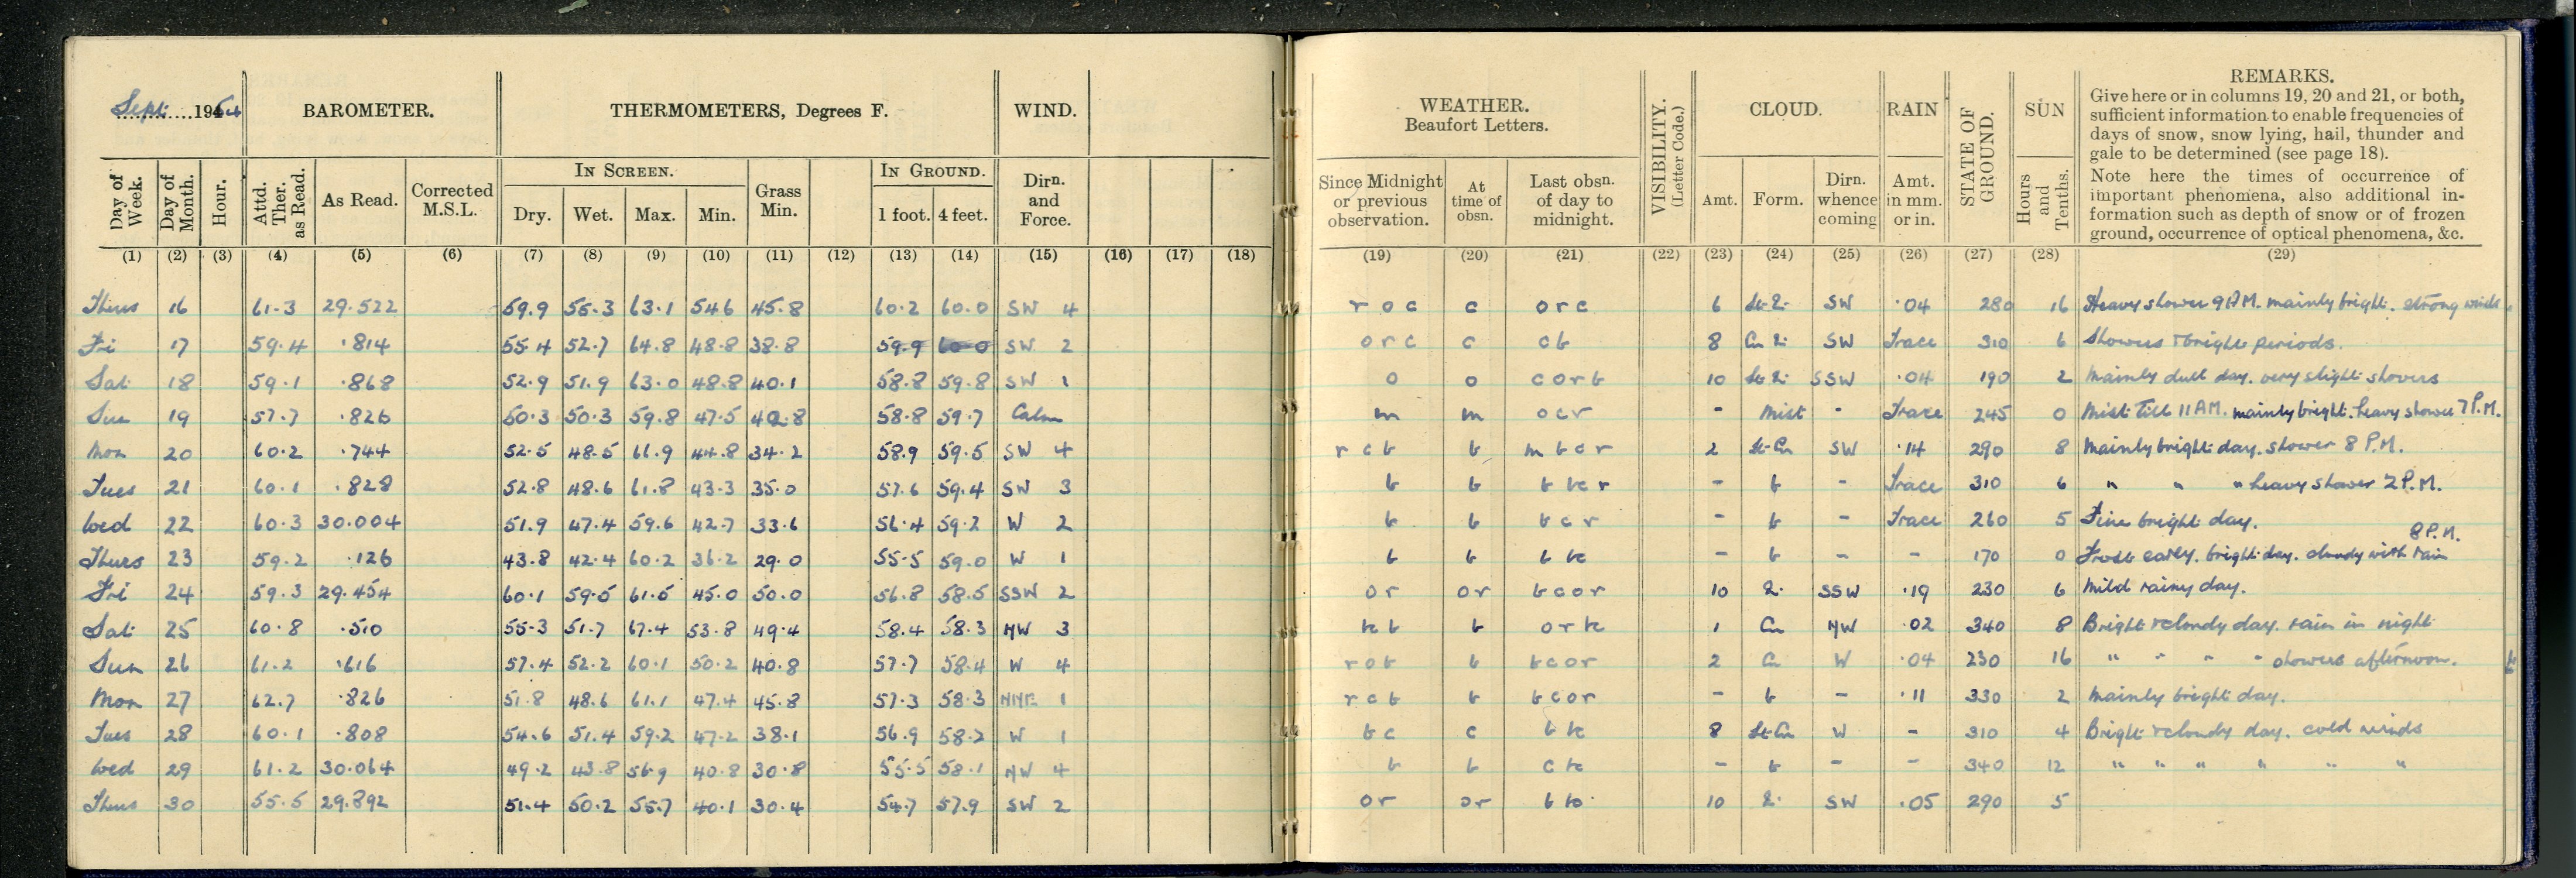 Sept. 1954 BAROMETER. THERMOMETERS, Degrees F. WIND.
Day of Week. Day of Month. Hour. Attd. Ther. as Read. As Read. Corrected M.S.L. IN SCREEN. Dry. Wet. Max. Min. Grass Min. IN GROUND. 1 foot. 4 feet. Dirn. and Force.
(1) (2) (3) (4) (5) (6) (7) (8) (9) (10) (11) (12) (13) (14) (15) (16) (17) (18)
Thurs 16 61.3 29.522 59.9 55.3 63.1 54.6 45.8 60.2 60.0 SW 4
Fri 17 59.4 .814 55.4 52.7 64.8 48.8 38.8 59.9 60.0 SW 2
Sat 18 59.1 .868 52.9 51.9 63.0 48.8 40.1 58.8 59.8 SW 1
Sun 19 57.7 .826 50.3 50.3 59.8 47.5 42.8 58.8 59.7 Calm
Mon 20 60.2 .744 52.5 48.5 61.9 44.8 34.2 58.9 59.5 SW 4
Tues 21 60.1 .828 52.8 48.6 61.8 43.3 35.0 57.6 59.4 SW 3
Wed 22 60.3 30.004 51.9 47.4 59.6 42.7 33.6 56.4 59.2 W 2
Thurs 23 59.2 .126 43.8 42.4 60.2 36.2 29.0 55.5 59.0 W 1
Fri 24 59.3 29.454 60.1 59.5 61.5 45.0 50.0 56.8 58.5 SSW 2
Sat 25 60.8 .510 55.3 51.7 67.4 53.8 49.4 58.4 58.3 NW 3
Sun 26 61.2 .616 57.4 52.2 60.1 50.2 40.8 57.7 58.4 W 4
Mon 27 62.7 .826 51.8 48.6 61.1 47.4 45.8 57.3 58.3 NNE 1
Tues 28 60.1 .808 54.6 51.4 59.2 47.2 38.1 56.9 58.2 W 1
Wed 29 61.2 30.064 49.2 43.8 56.9 40.8 30.8 55.5 58.1 NW 4
Thurs 30 55.5 29.892 51.4 50.2 55.7 40.1 30.4 54.7 57.9 SW 2
WEATHER. Beaufort Letters. VISIBILITY. (Letter Code.) CLOUD. RAIN STATE OF GROUND. SUN REMARKS.
Give here or in columns 19, 20 and 21, or both,
sufficient information to enable frequencies of
days of snow, snow lying, hail, thunder and
gale to be determined (see page 18).
Note here the times of occurrence of
important phenomena, also additional in-
formation such as depth of snow or of frozen
ground, occurrence of optical phenomena, &c.
Since Midnight or previous observation. At time of obsn. Last obsn. of day to midnight. Amt. Form. Dirn. whence coming Amt. in mm. or in. Hours and Tenths.
(19) (20) (21) (22) (23) (24) (25) (26) (27) (28) (29)
r o c c o r c 6 SW .04 280 16 Heavy shower 9 A.M. mainly bright. strong winds
o r c c c b 8 SW Trace 310 6 Showers & bright periods.
o o c o r b 10 SSW .04 190 2 Mainly dull day. very slight showers
m m o c r - Mist - Trace 245 0 Mist Till 11 A.M. mainly bright. heavy shower 7 P.M.
r c b b m b c r 2 St-Cu SW .14 290 8 Mainly bright day. shower 8 P.M.
b b b bc r - b - Trace 310 6 " " " heavy shower 2 P.M.
b b b c r - b - Trace 260 5 Fine bright day.
b b b bc - b - - 170 0 Frost early. bright day. cloudy with rain 8 P.M.
o r o r b c o r 10 SSW .19 230 6 Mild rainy day.
bc b b o r bc 1 Cu NW .02 340 8 Bright & cloudy day. rain in night
r o b b b c o r 2 Cu W .04 230 16 " " " " showers afternoon.
r c b b b c o r - b - .11 330 2 Mainly bright day.
b c c b bc 8 St-Cu W - 310 4 Bright & cloudy day. cold winds
b b c bc - b - - 340 12 " " " " " "
o r o r b bc 10 SW .05 290 5